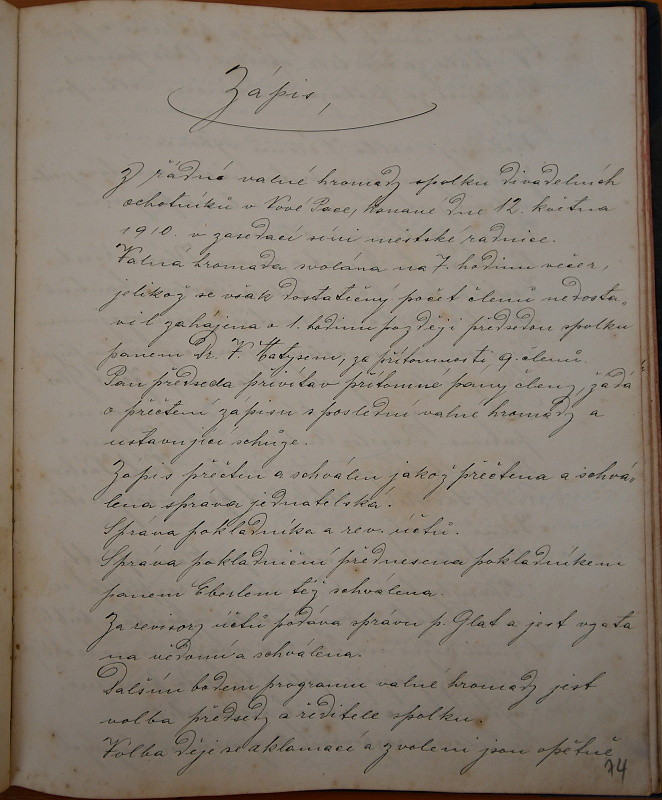 Zápis,
Z řádné valné hromady spolku divadelních
ochotníků v Nové Pace, konané dne 12. května
1910. v zasedací síni městské radnice.
Valná hromada svolána na 7. hodinu večer,
jelikož se však dostatečný počet členů nedosta-
vil zahájena o 1. hodinu později předsedou spolku
panem Dr. F. Matysem, za přítomnosti 9. členů.
Pan předseda přivítav přítomné pany členy, žádá
o přečtení zápisu s poslední valné hromady a
ustavující schůze.
Zapis přečten a schválen jakož přečtena a schvá-
lena sprava jednatelská.
Správa pokladníka a rev. účtů.
Správa pokladniční přednesena pokladníkem
panem Eberlem též schválena.
Za revisory účtů podáva správu p. Glat a jest vzata
na vědomi a schválena.
Dalším bodem programu valné hromady jest
volba předsedy a ředitele spolku.
Volba děje se aklamací a zvoleni jsou opětně
74